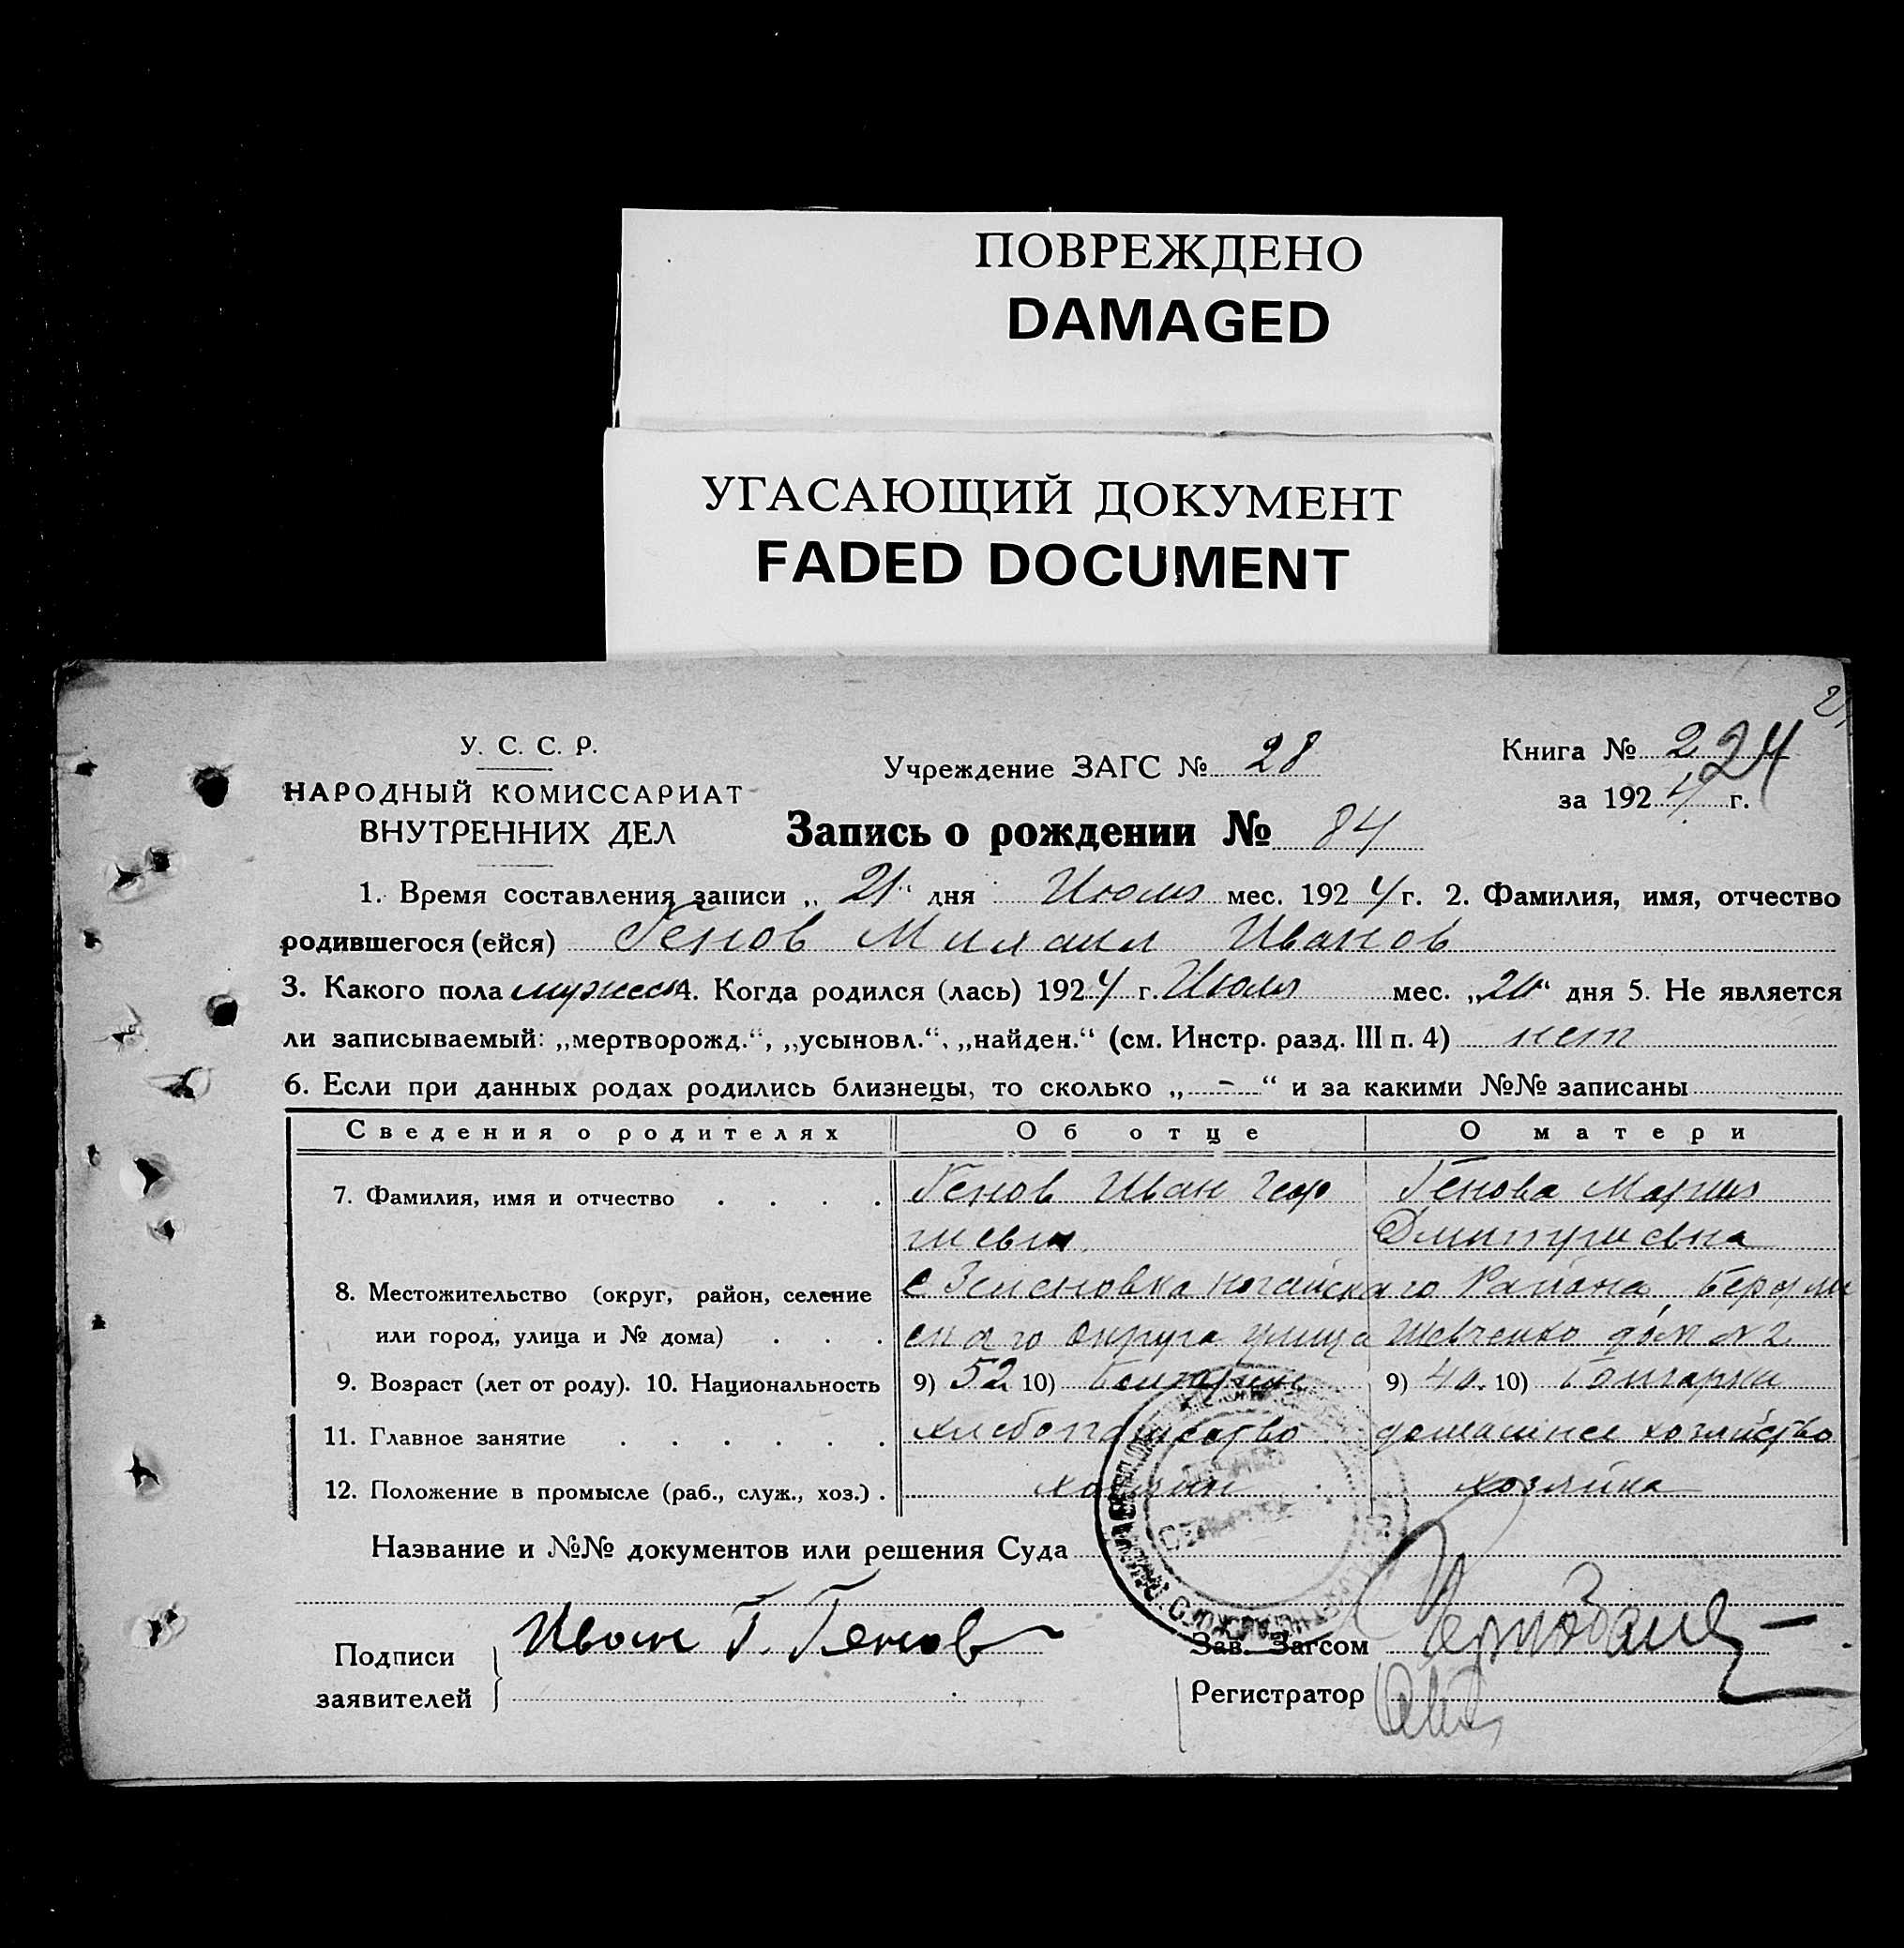 ПОВРЕЖДЕНО
DAMAGED
УГАСАЮЩИЙ ДОКУМЕНТ
FADED DOCUMENT
У. С. С. Р.
НАРОДНЫЙ КОМИССАРИАТ
ВНУТРЕННИХ ДЕЛ
Учреждение ЗАГС № 28
Книга № 2 24
за 1924 г.
Запись о рождении № 84
1. Время составления записи „ 21 “ дня Июля мес. 1924 г. 2. Фамилия, имя, отчество
родившегося (ейся) Генов Михаил Иванов
3. Какого пола мужеск 4. Когда родился (лась) 1924 г. Июля мес. „20“ дня 5. Не является
ли записываемый: „мертворожд.“, „усыновл.“, „найден.“ (см. Инстр. разд. III п. 4) нет
6. Если при данных родах родились близнецы, то сколько „ - “ и за какими №№ записаны
Сведения о родителях Об отце О матери
7. Фамилия, имя и отчество . . . . Генов Иван Геор Генова Мария
гиевич Дмитриевна
8. Местожительство (округ, район, селение с Зеленовка Ногайского Района Бердян
или город, улица и № дома) . . . ского округа улица Шевченко дом № 2
9. Возраст (лет от роду). 10. Национальность 9) 52 10) Болгарин 9) 40. 10) Болгарка
11. Главное занятие . . . . . . хлебопашество домашнее хозяйство
12. Положение в промысле (раб., служ., хоз.) . хозяин хозяйка
Название и №№ документов или решения Суда
Подписи заявителей } Иван Г. Генов
Зав. Загсом
Регистратор